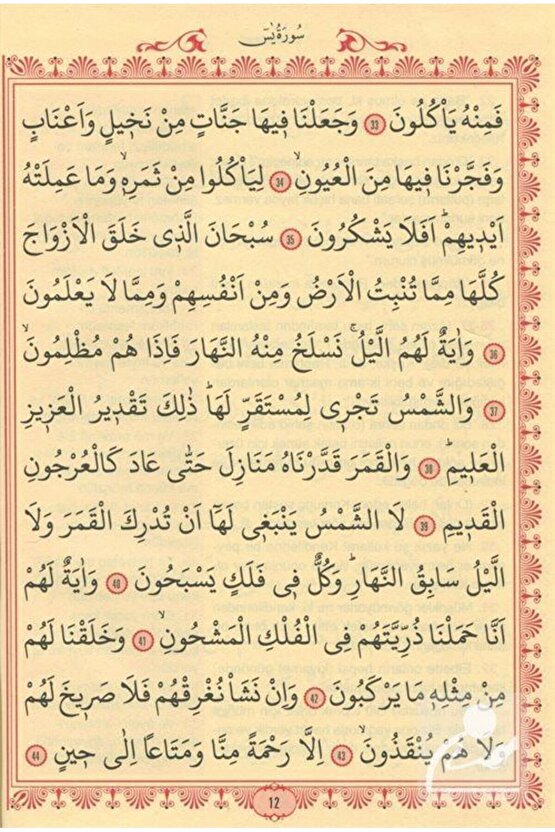 سُورَةُ يٰسٓ
فَمِنْهُ يَأْكُلُونَ ﴿33﴾ وَجَعَلْنَا فٖيهَا جَنَّاتٍ مِنْ نَخٖيلٍ وَاَعْنَابٍ
وَفَجَّرْنَا فٖيهَا مِنَ الْعُيُونِۙ ﴿34﴾ لِيَأْكُلُوا مِنْ ثَمَرِهٖۙ وَمَا عَمِلَتْهُ
اَيْدٖيهِمْؕ اَفَلَا يَشْكُرُونَ ﴿35﴾ سُبْحَانَ الَّذٖى خَلَقَ الْاَزْوَاجَ
كُلَّهَا مِمَّا تُنْبِتُ الْاَرْضُ وَمِنْ اَنْفُسِهِمْ وَمِمَّا لَا يَعْلَمُونَ
﴿36﴾ وَاٰيَةٌ لَهُمُ الَّيْلُۚ نَسْلَخُ مِنْهُ النَّهَارَ فَاِذَا هُمْ مُظْلِمُونَۙ
﴿37﴾ وَالشَّمْسُ تَجْرٖى لِمُسْتَقَرٍّ لَهَاؕ ذٰلِكَ تَقْدٖيرُ الْعَزٖيزِ
الْعَلٖيمِؕ ﴿38﴾ وَالْقَمَرَ قَدَّرْنَاهُ مَنَازِلَ حَتّٰى عَادَ كَالْعُرْجُونِ
الْقَدٖيمِ ﴿39﴾ لَا الشَّمْسُ يَنْبَغٖى لَهَٓا اَنْ تُدْرِكَ الْقَمَرَ وَلَا
الَّيْلُ سَابِقُ النَّهَارِؕ وَكُلٌّ فٖى فَلَكٍ يَسْبَحُونَ ﴿40﴾ وَاٰيَةٌ لَهُمْ
اَنَّا حَمَلْنَا ذُرِّيَّتَهُمْ فِى الْفُلْكِ الْمَشْحُونِۙ ﴿41﴾ وَخَلَقْنَا لَهُمْ
مِنْ مِثْلِهٖ مَا يَرْكَبُونَ ﴿42﴾ وَاِنْ نَشَأْ نُغْرِقْهُمْ فَلَا صَرٖيخَ لَهُمْ
وَلَا هُمْ يُنْقَذُونَۙ ﴿43﴾ اِلَّا رَحْمَةً مِنَّا وَمَتَاعًا اِلٰى حٖينٍ ﴿44﴾
12